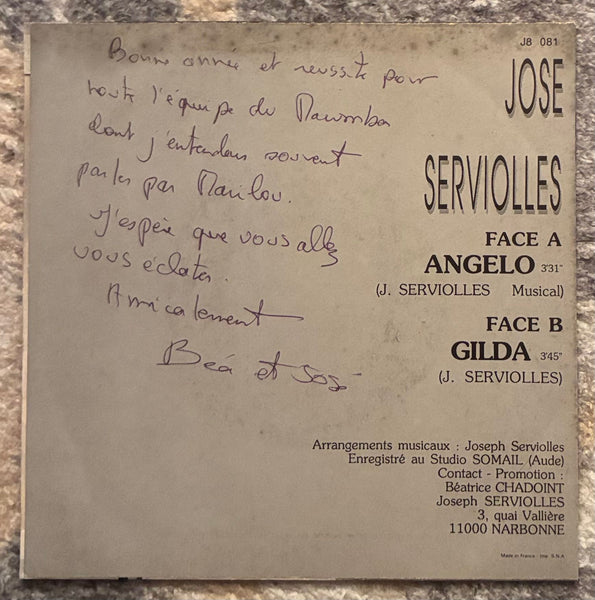 Bonne année et réussite pour
toute l'équipe du Maccumba
dont j'entendais souvent
parler par Marilou.
J'espère que vous allez
vous éclater.
Amicalement
Béa et José
J8 081
JOSE
SERVIOLLES
FACE A
ANGELO 3'31"
(J. SERVIOLLES Musical)
FACE B
GILDA 3'45"
(J. SERVIOLLES)
Arrangements musicaux : Joseph Serviolles
Enregistré au Studio SOMAIL (Aude)
Contact - Promotion :
Béatrice CHADOINT
Joseph SERVIOLLES
3, quai Vallière
11000 NARBONNE
Made in France - Imp. S.N.A